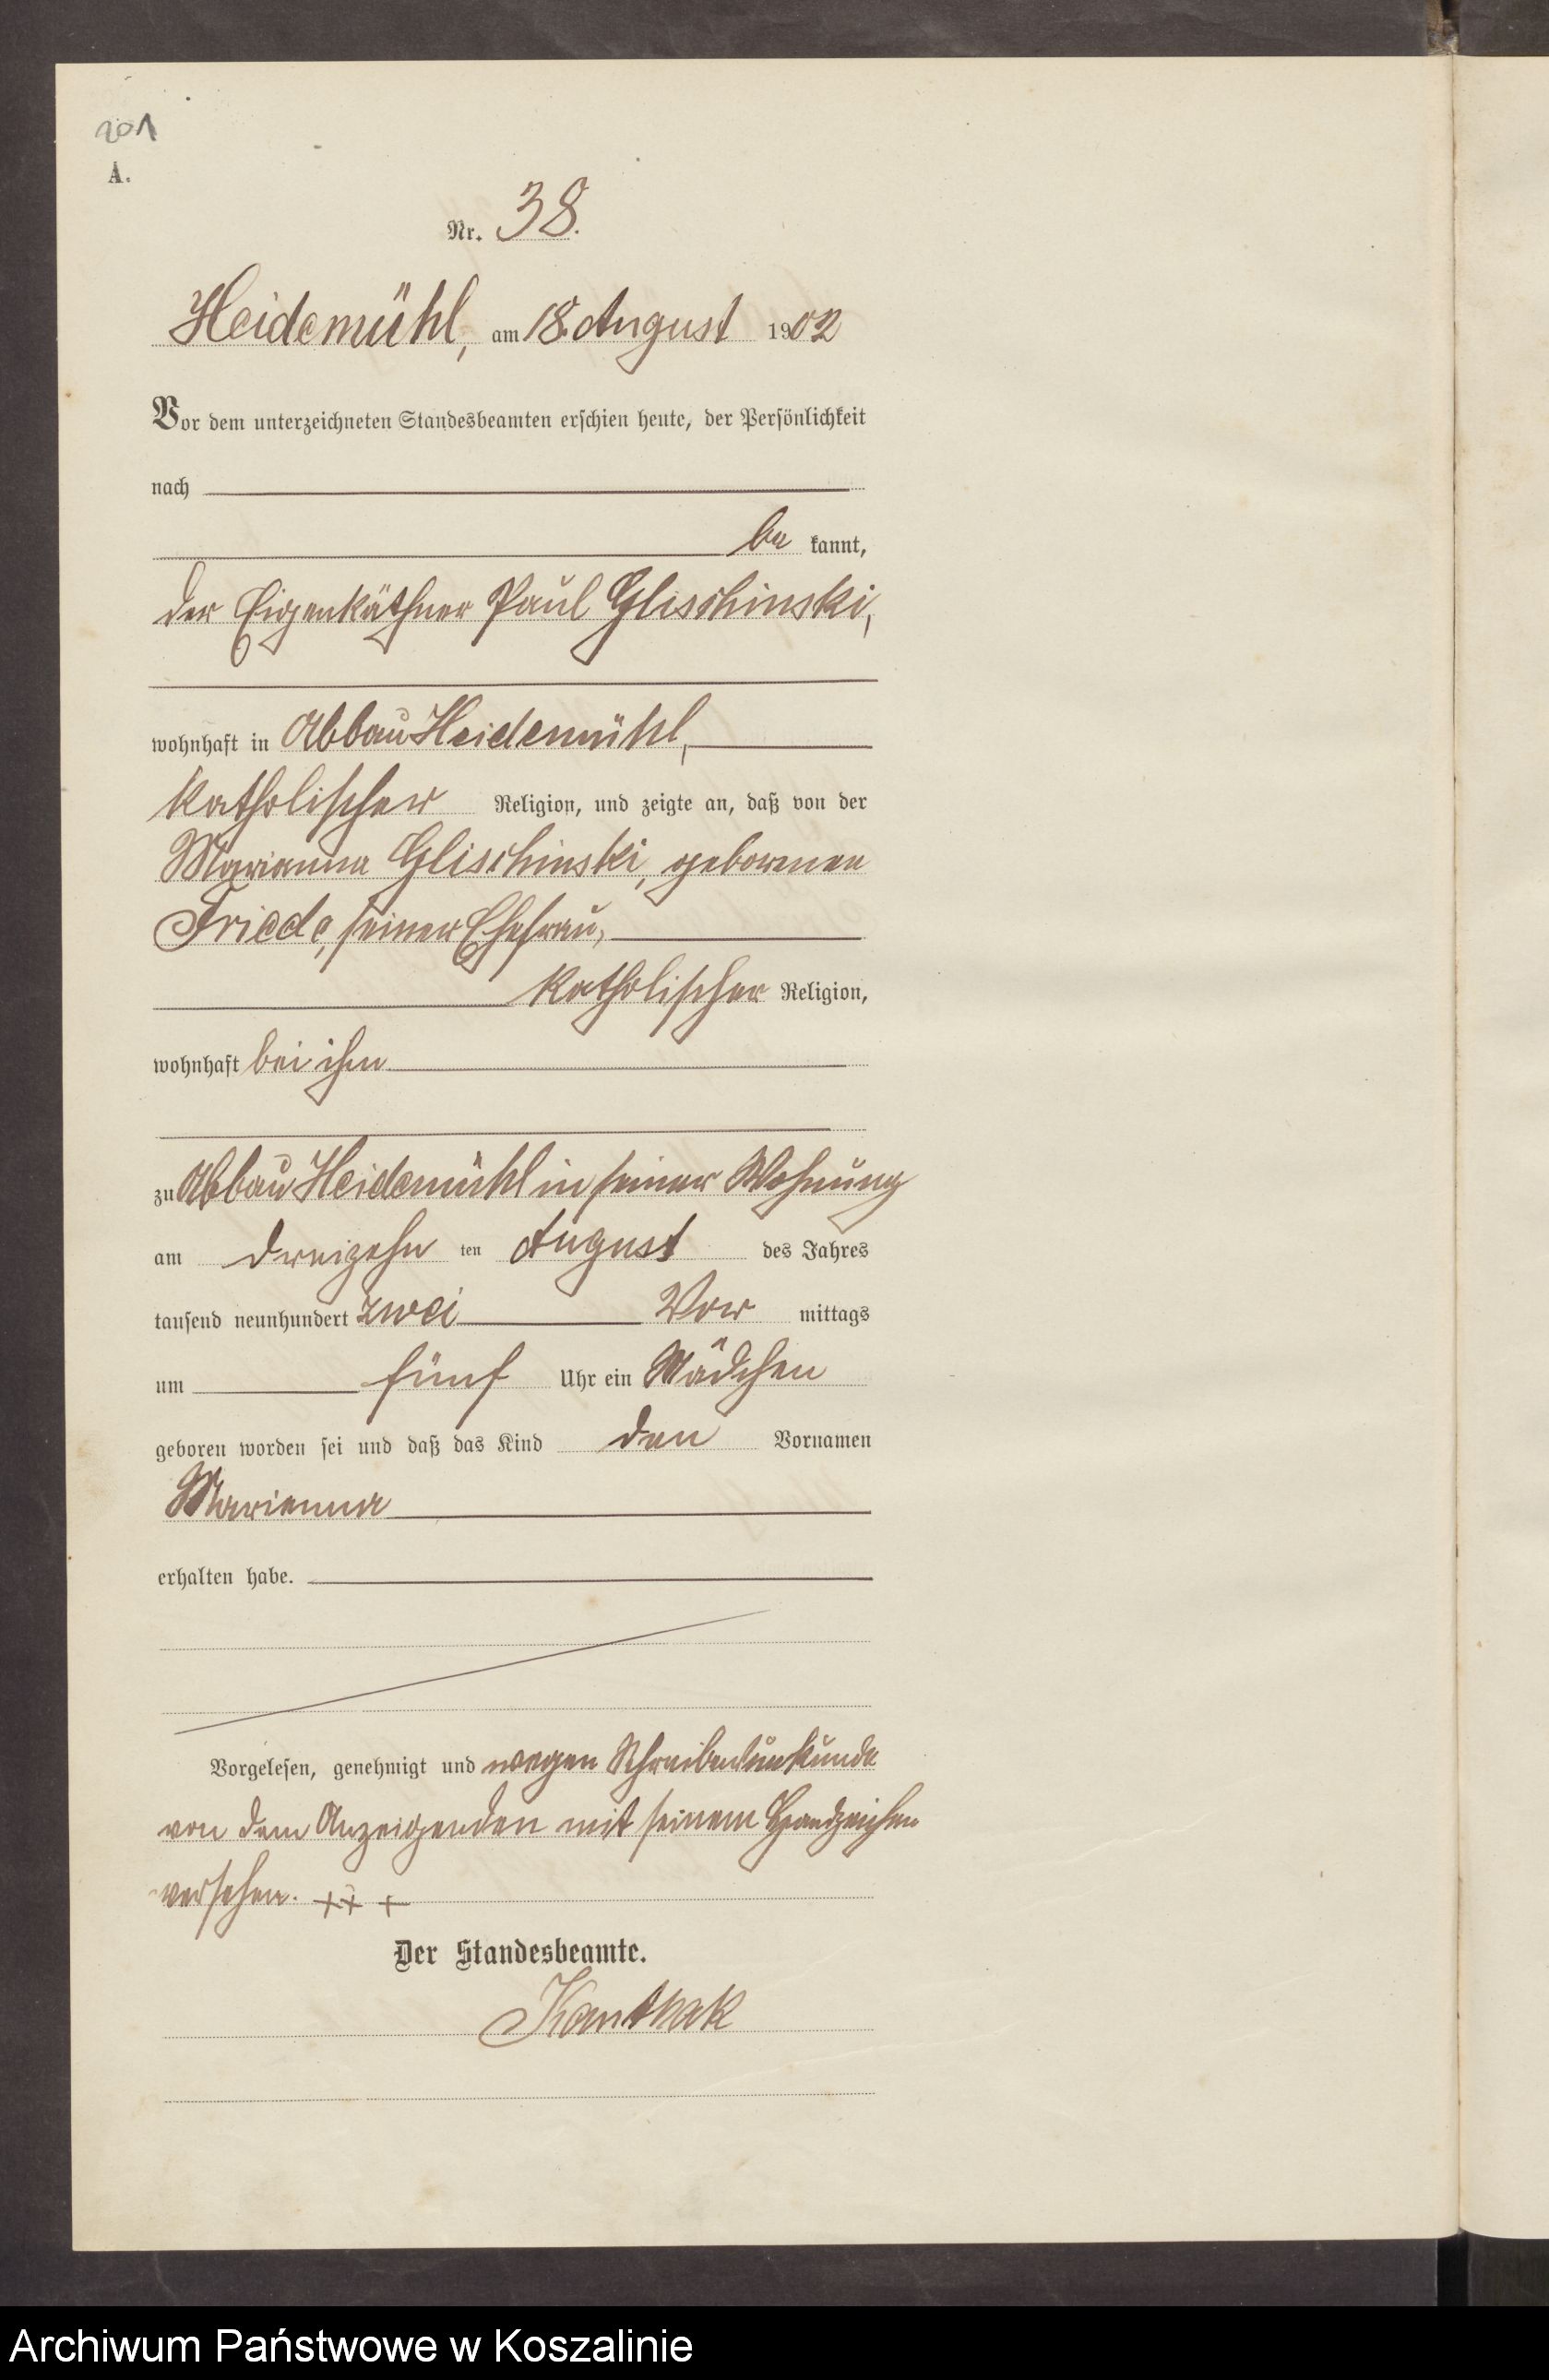 201
A.
Nr. 38.
Heidemühl, am 18. August 1902
Vor dem unterzeichneten Standesbeamten erschien heute, der Persönlichkeit
nach
be kannt,
der Eigenkäthner Paul Glischinski,
wohnhaft in Abbau Heidemühl,
katholischer Religion, und zeigte an, daß von der
Marianna Glischinski, geborenen
Friede, seiner Ehefrau,
katholischer Religion,
wohnhaft bei ihm
zu Abbau Heidemühl in seiner Wohnung
am dreizehn ten August des Jahres
tausend neunhundert zwei Vor mittags
um fünf Uhr ein Mädchen
geboren worden sei und daß das Kind den Vornamen
Marianna
erhalten habe.
Vorgelesen, genehmigt und wegen Schreibensunkunde
von dem Anzeigenden mit seinem Handzeichen
versehen. +++
Der Standesbeamte.
Kanthak
Archiwum Państwowe w Koszalinie